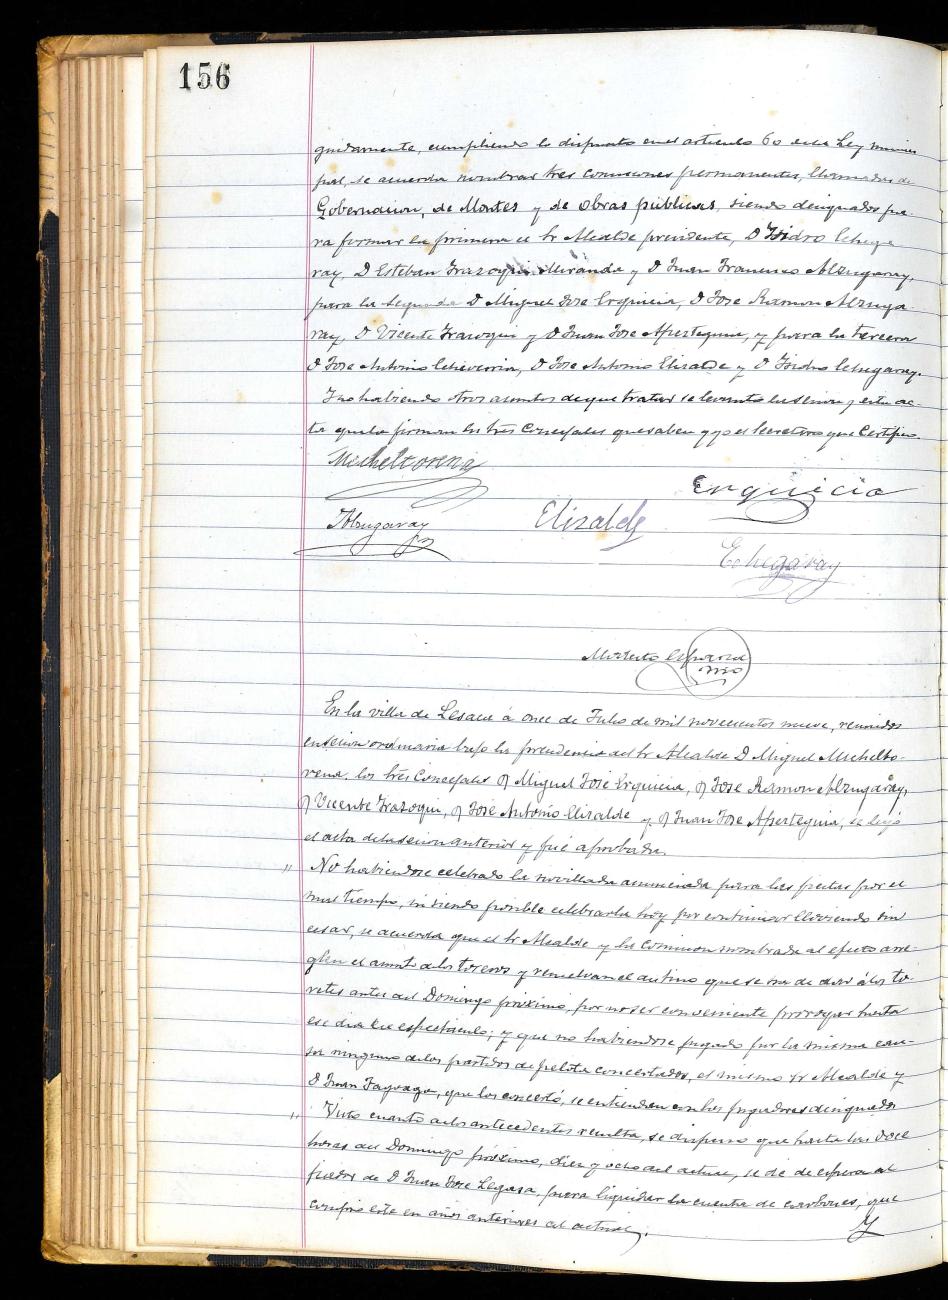 156
guidamente, cumpliendo lo dispuesto en el artículo 60 de la Ley munici
pal, se acuerda nombrar tres comisiones permanentes, llamadas de
Gobernacion, de Montes y de obras públicas, siendo designados pa-
ra formar la primera el Sr Alcalde presidente, D Isidro Echega
ray, D Esteban Irazoqui Miranda y D Juan Francisco Alzugaray,
para la segunda D Miguel José Erquicia, D José Ramon Alzuga
ray, D Vicente Irazoqui y D Juan José Apezteguia, y para la tercera
D José Antonio Echeverria, D José Antonio Elizalde y D Isidro Echegaray.
Y no habiendo otros asuntos de que tratar se levanto la sesion y esta ac-
ta que la firman los Srs Concejales que saben y yo el Secretario que Certifico.
Micheltorena
Erquicia
Alzugaray
Elizalde
Echegaray
Modesto Esparza
Srio
En la villa de Lesaca á once de Julio de mil novecientos nueve, reunidos
en sesion ordinaria bajo la presidencia del Sr Alcalde D Miguel Michelto-
rena, los Srs Concejales D Miguel José Erquicia, D José Ramon Alzugaray,
D Vicente Irazoqui, D José Antonio Elizalde y D Juan José Apezteguia, se leyó
el acta de la sesion anterior y fué aprobada.
" No habiendose celebrado la novillada anunciada para las fiestas por el
mal tiempo, ni siendo posible celebrarla hoy por continuar lloviendo sin
cesar, se acuerda que el Sr Alcalde y la Comision nombrada al efecto arre-
glen el asunto de los toreros y resuelvan el destino que se ha de dar á los to-
retes antes del Domingo próximo, por no ser conveniente prorrogar hasta
ese dia tal espectáculo; y que no habiendose jugado por la misma cau-
sa ninguno de los partidos de pelota concertados, el mismo Sr Alcalde y
D Juan Fagoaga, que los concertó, se entiendan con los jugadores designados
" Visto cuanto de los antecedentes resulta, se dispuso que hasta las doce
horas del Domingo próximo, diez y ocho del actual, se dé de espera al
fiador de D Juan José Legasa, para liquidar la cuenta de carbones, que
compró este en años anteriores al actual.
Y